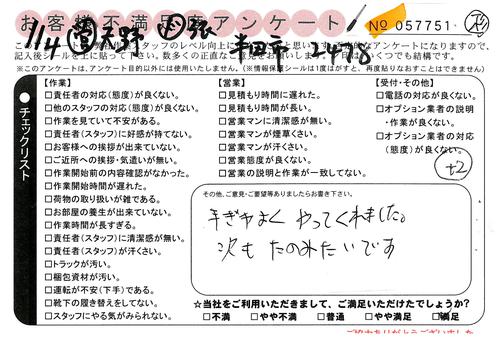 お客様不満足度アンケート
No 057751
1/14 営 天野 引 張
半田市 2418
記入後シールを上に貼って下さい。数多くの正直なご意見をお聞かせ下さい。
※このアンケートは、アンケート目的以外には使用いたしません。(※情報保護シールは1度はがすと、再度貼りなおすことはできません)
チェックリスト
【作業】
□責任者の対応(態度)が良くない。
□他のスタッフの対応(態度)が良くない。
□作業を見ていて不安がある。
□責任者(スタッフ)に好感が持てない。
□お客様への挨拶が出来ていない。
□ご近所への挨拶・気遣いが無い。
□作業開始前の内容確認がなかった。
□作業開始時間が遅れた。
□荷物の取り扱いが雑である。
□お部屋の養生が出来ていない。
□作業時間が長すぎる。
□責任者(スタッフ)に清潔感が無い。
□責任者(スタッフ)が汗くさい。
□トラックが汚い。
□梱包資材が汚い。
□運転が不安(下手)である。
□靴下の履き替えをしてない。
□スタッフにやる気がみられない。
【営業】
□見積もり時間に遅れた。
□見積もり時間が長い。
□営業マンに清潔感が無い。
□営業マンが煙草くさい。
□営業マンが汗くさい。
□営業態度が良くない。
□営業の説明と作業が一致してない。
【受付・その他】
□電話の対応が良くない。
□オプション業者の説明
・作業が良くない。
□オプション業者の対応
(態度)が良くない。
t2
その他、ご意見・ご要望等ありましたらお書き下さい。
手ぎわよく やってくれました。
次も たのみたいです
☆当社をご利用いただきまして、ご満足いただけたでしょうか?
□不満 □やや不満 □普通 □やや満足 □満足
ご協力ありがとうございました